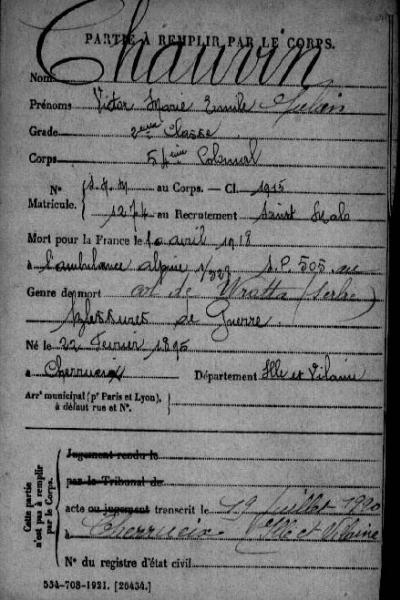 PARTIE À REMPLIR PAR LE CORPS.
Nom Chauvin
Prénoms Victor Marie Emile Julien
Grade 2eme Classe
Corps 54eme Colonial
N° Matricule. { S.I.M au Corps. — Cl. 1915
1274 au Recrutement Saint Malo
Mort pour la France le 10 avril 1918
à l'ambulance alpine 1/323 S.P. 505 au
Genre de mort col de Wratta (Serbie)
Blessures de Guerre
Né le 22 Février 1895
à Cherrueix Département Ille et Vilaine
Arrt municipal (pr Paris et Lyon), à défaut rue et N°.
Cette partie n'est pas à remplir par le Corps.
Jugement rendu le
par le Tribunal de
acte ou jugement transcrit le 19 Juillet 1920
à Cherrueix (Ille et Vilaine
N° du registre d'état civil
534-708-1921. [26434.]